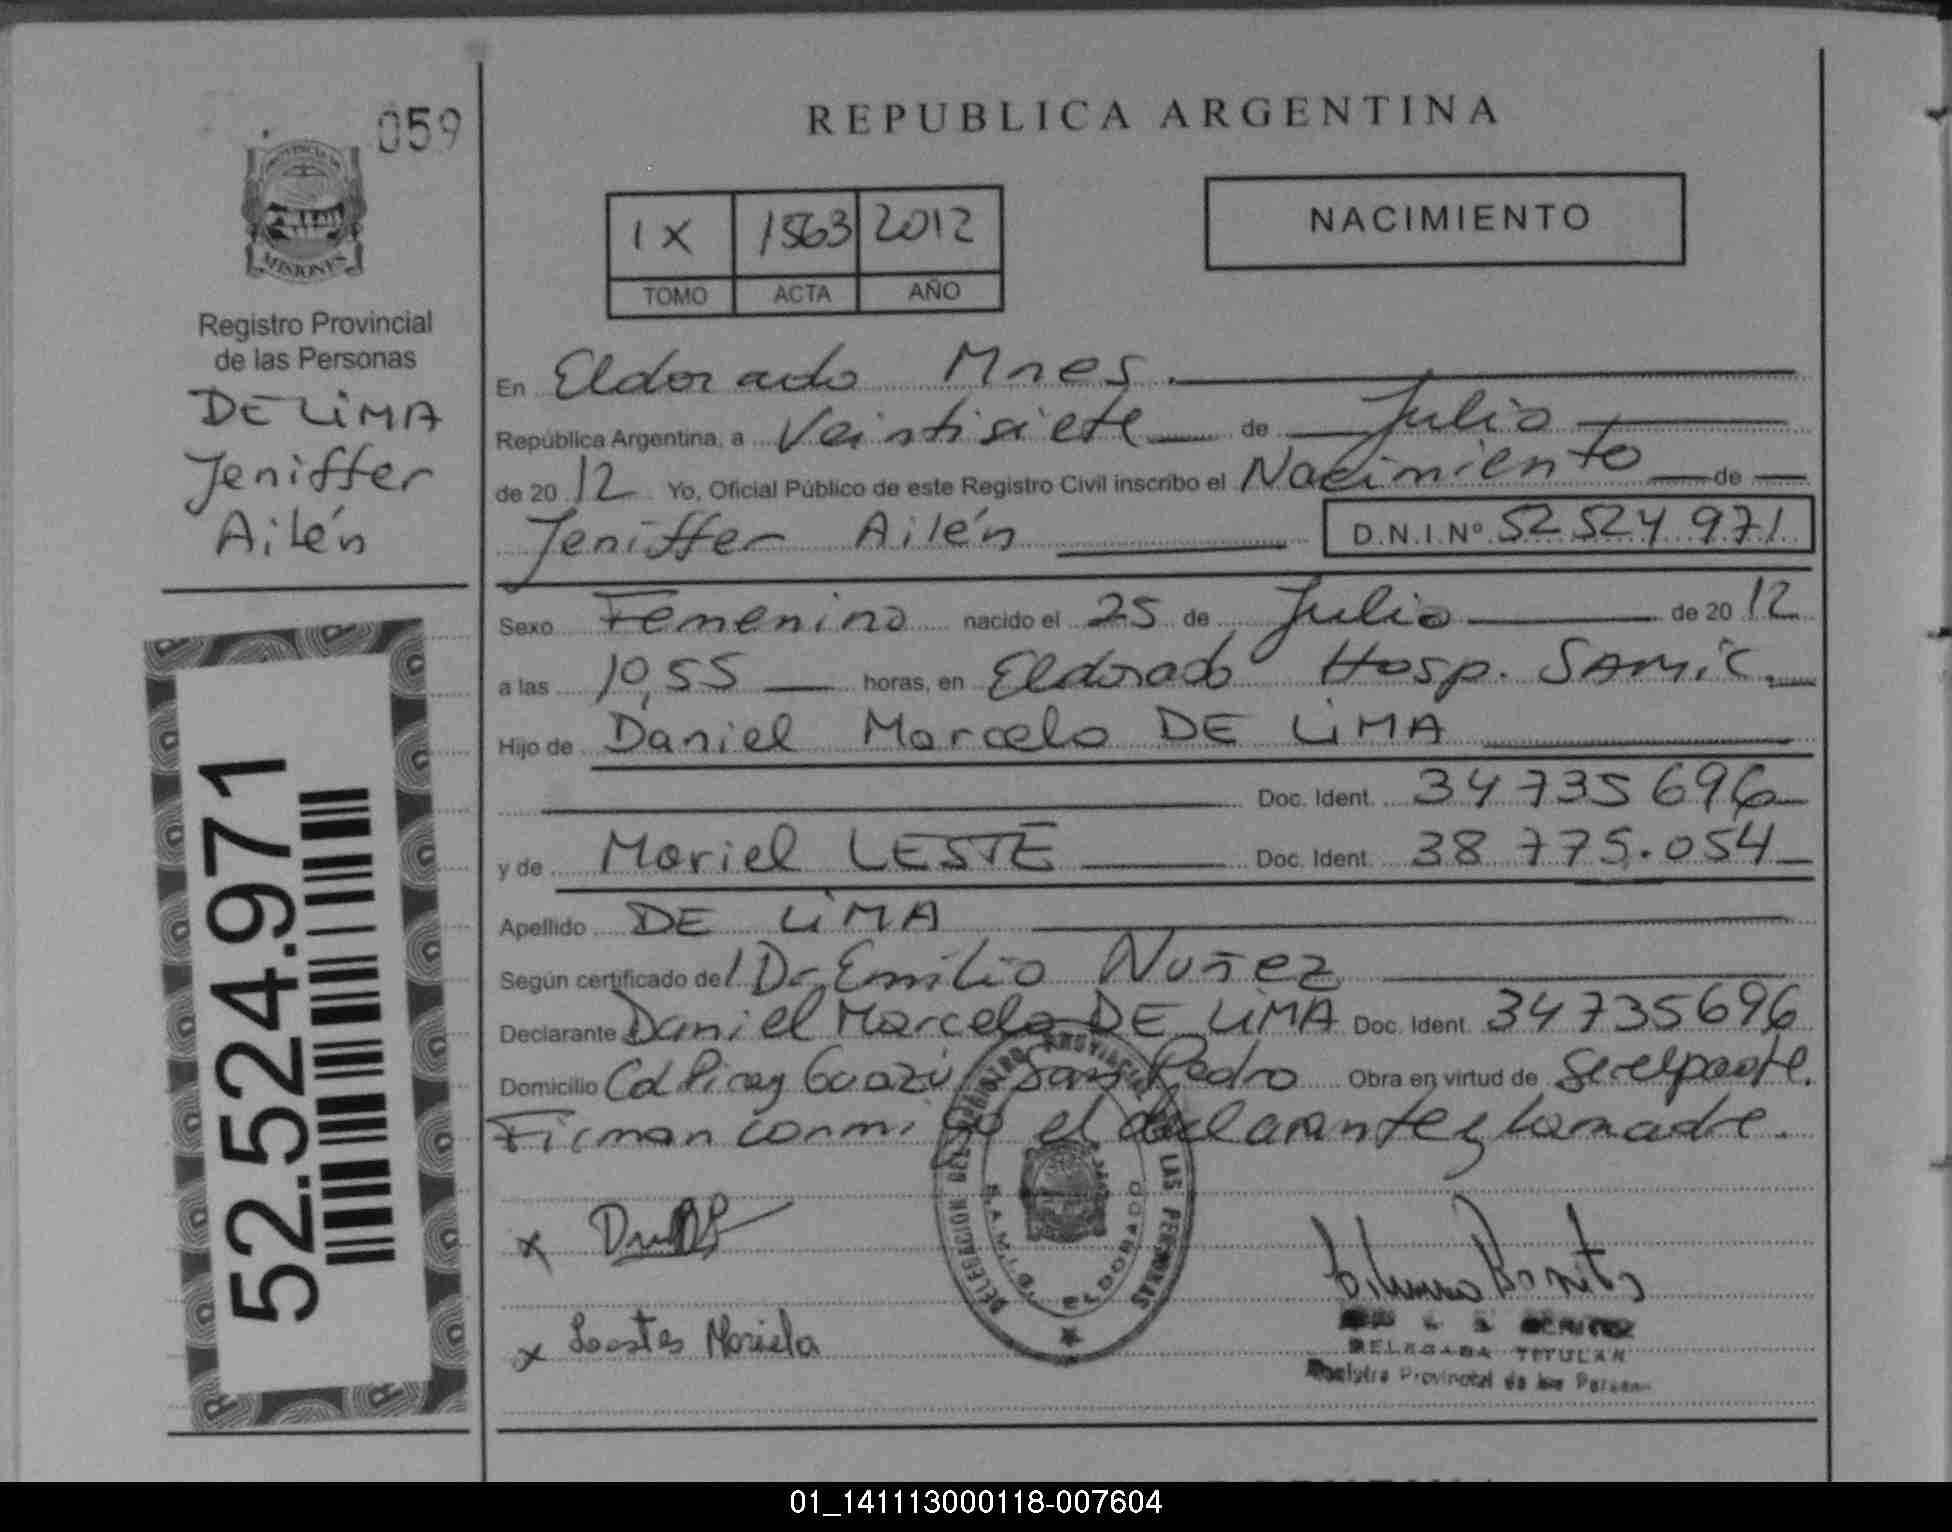 059
REPUBLICA ARGENTINA
PROVINCIA DE
MISIONES
Registro Provincial
de las Personas
DE LIMA
Jeniffer
Ailén
IX 1563 2012
TOMO ACTA AÑO
NACIMIENTO
En Eldorado Mnes.
República Argentina, a Veintisiete de Julio
de 20 12 Yo, Oficial Público de este Registro Civil inscribo el Nacimiento de
Jeniffer Ailén D.N.I.Nº 52 524 971
Sexo Femenino nacido el 25 de Julio de 20 12
a las 10,55 horas, en Eldorado Hosp. SAMIC.
Hijo de Daniel Marcelo DE LIMA
Doc. Ident. 34 735 696
y de Mariel LESTE Doc. Ident. 38 775.054
Apellido DE LIMA
Según certificado de l Dr Emilio Nuñez
Declarante Daniel Marcelo DE LIMA Doc. Ident. 34 735696
Domicilio Col Piray Guazú San Pedro Obra en virtud de
Firman conmigo el declarante y la madre.
52.524.971
DELEGACIÓN DEL REGISTRO PROVINCIAL DE LAS PERSONAS
S.A.M.I.C. ELDORADO
x
x Lestes Mariela
BENITEZ
DELEGADA TITULAR
Registro Provincial de las Person
01_141113000118-007604